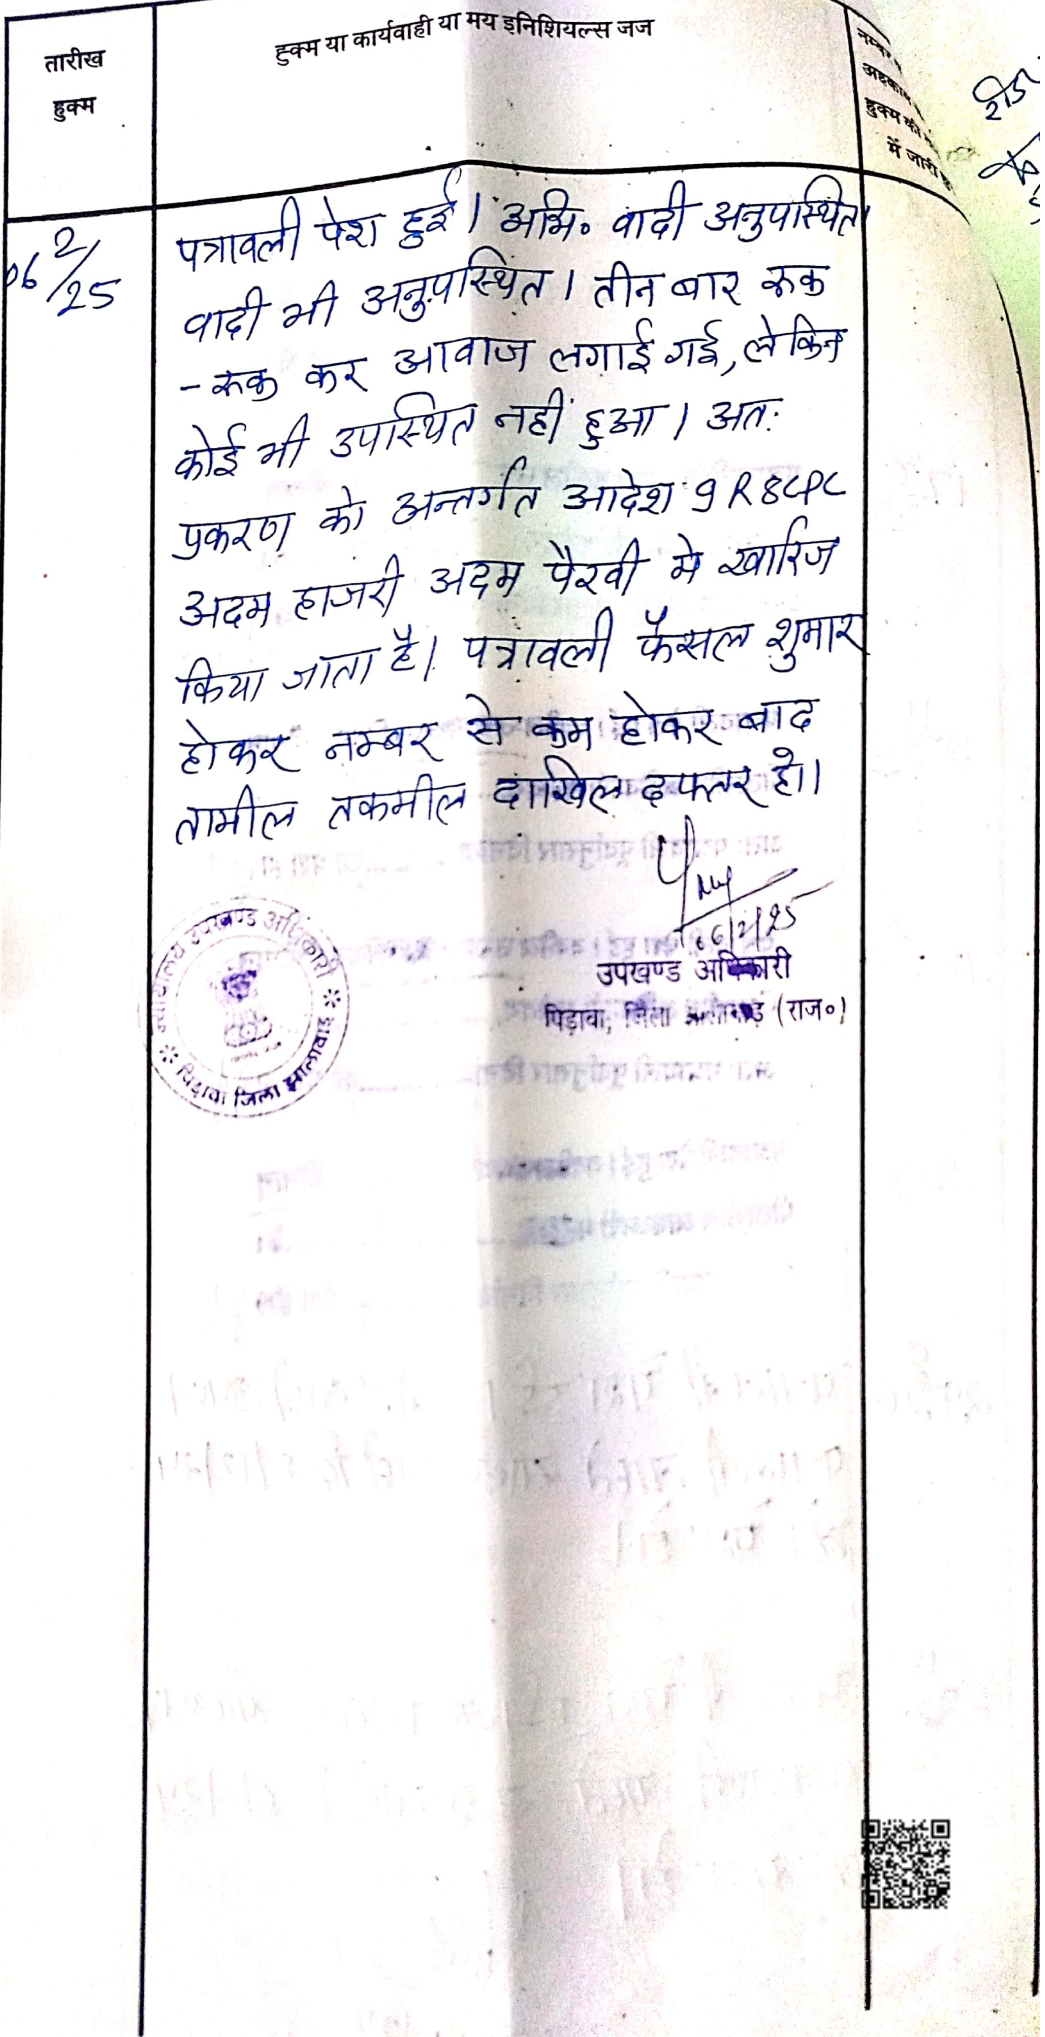 तारीख
हुक्म
हुक्म या कार्यवाही या मय इनिशियल्स जज
नम्बर
अहकाम
हुक्म की
में जारी
06/2/25
पत्रावली पेश हुई। अभि० वादी अनुपस्थित।
वादी भी अनुपस्थित। तीन बार रूक
-रूक कर आवाज लगाई गई, लेकिन
कोई भी उपस्थित नहीं हुआ। अतः
प्रकरण को अन्तर्गत आदेश 9 R 8 CPC
अदम हाजरी अदम पैरवी मे खारिज
किया जाता है। पत्रावली फैसल शुमार
होकर नम्बर से कम होकर बाद
तामील तकमील दाखिल दफ्तर हो।
06/2/25
उपखण्ड अधिकारी
पिड़ावा, जिला झालावाड़ (राज०)
उपखण्ड अधिकारी
पिड़ावा जिला झालावाड़